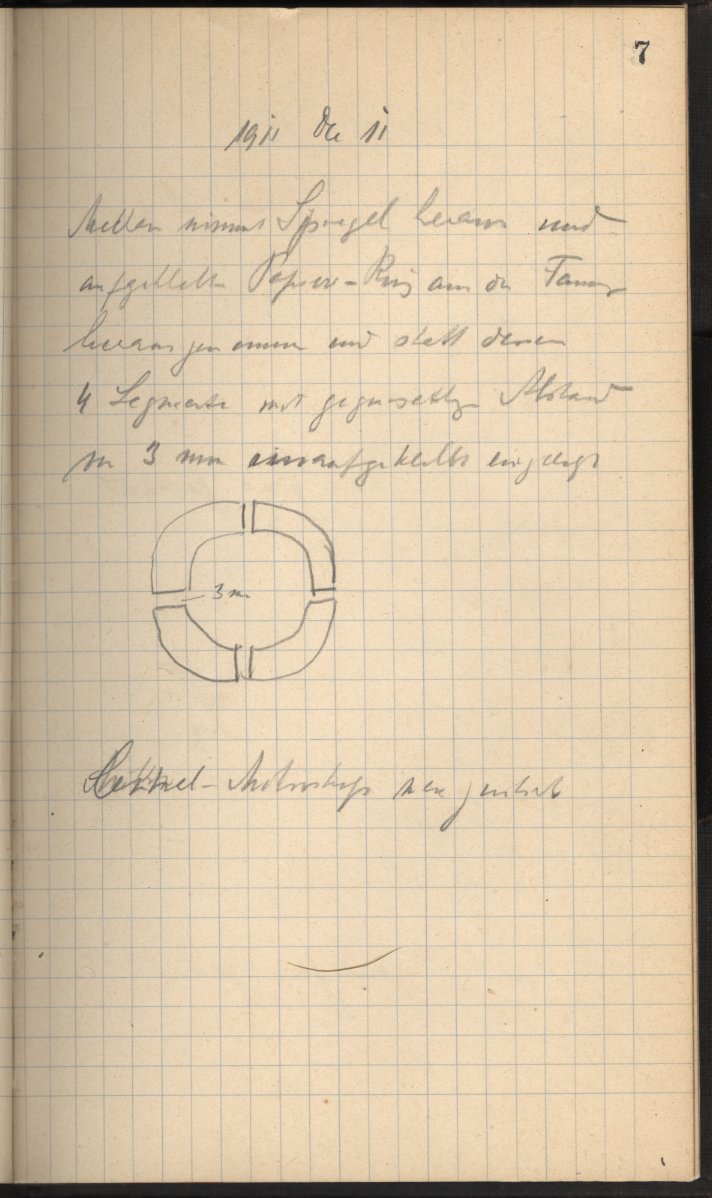 7
1911 Dez 11
nimmt Spiegel heraus und
aufgeklebten Papier-Ring aus der Fassung
herausgenommen und statt dessen
4 Segmente mit gegenseitigem Abstand
von 3 mm aufgeklebt eingelegt
3 m
Mikroskop neu justiert